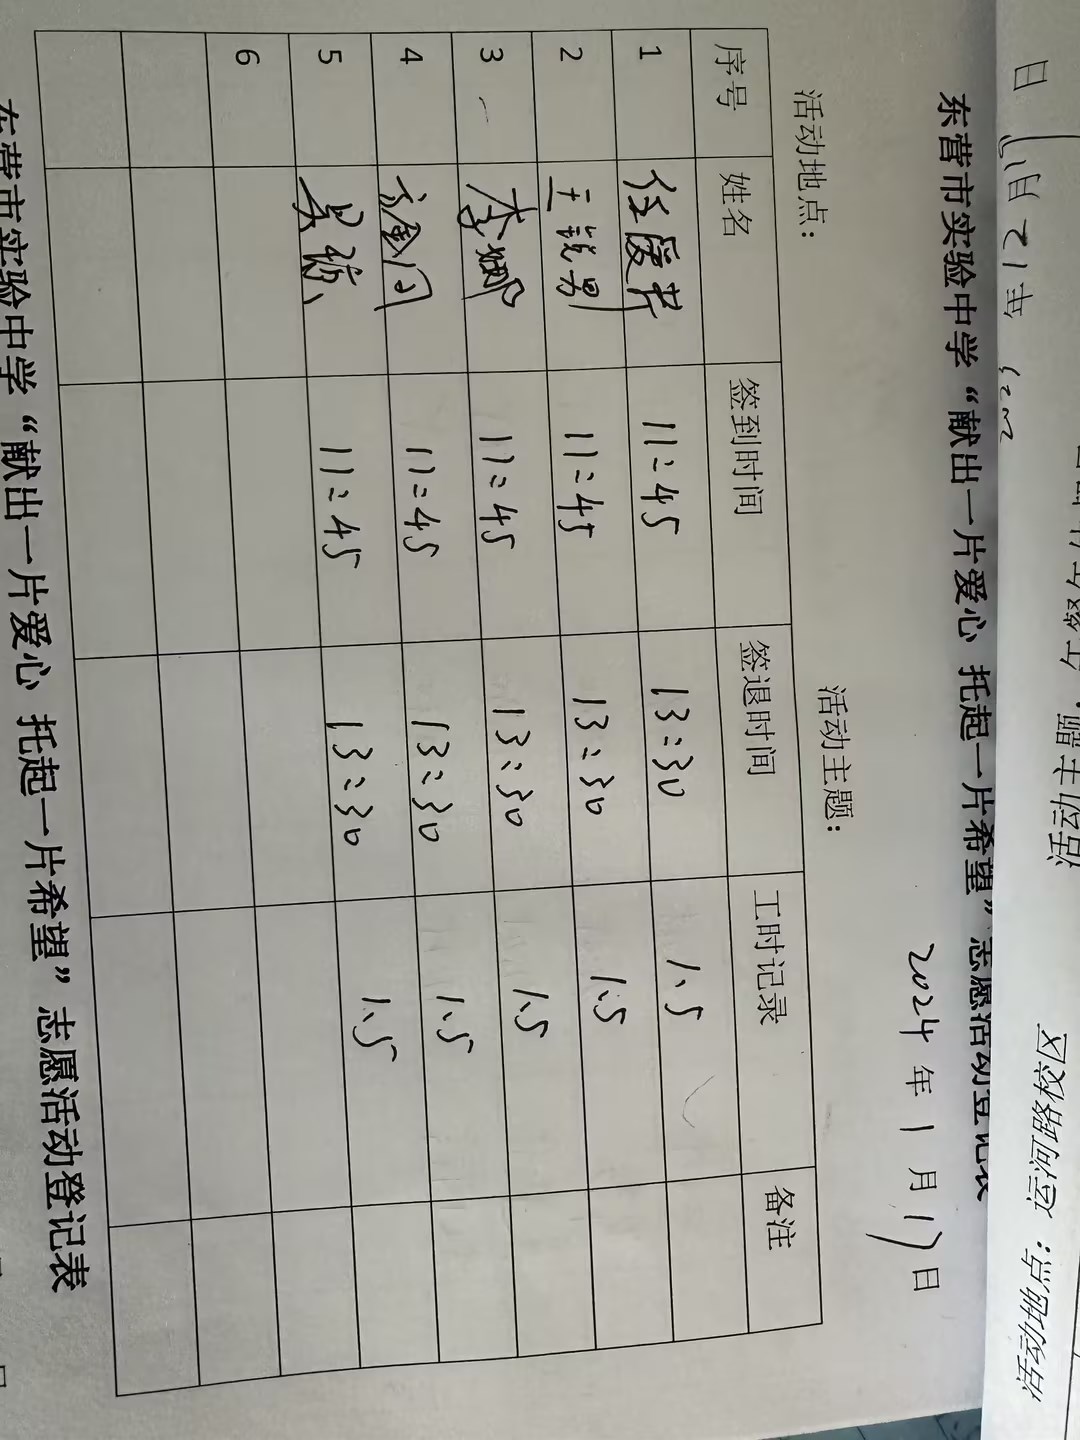 日
年12月17日
活动主题：
活动地点：运河路校区
东营市实验中学“献出一片爱心 托起一片希望”志愿活动登记表
2024年1月17日
活动地点： 活动主题：
序号 姓名 签到时间 签退时间 工时记录 备注
1 任爱芹 11:45 13:30 1.5
2 王锐男 11:45 13:30 1.5
3 李娜 11:45 13:30 1.5
4 11:45 13:30 1.5
5 11:45 13:30 1.5
6
东营市实验中学“献出一片爱心 托起一片希望”志愿活动登记表